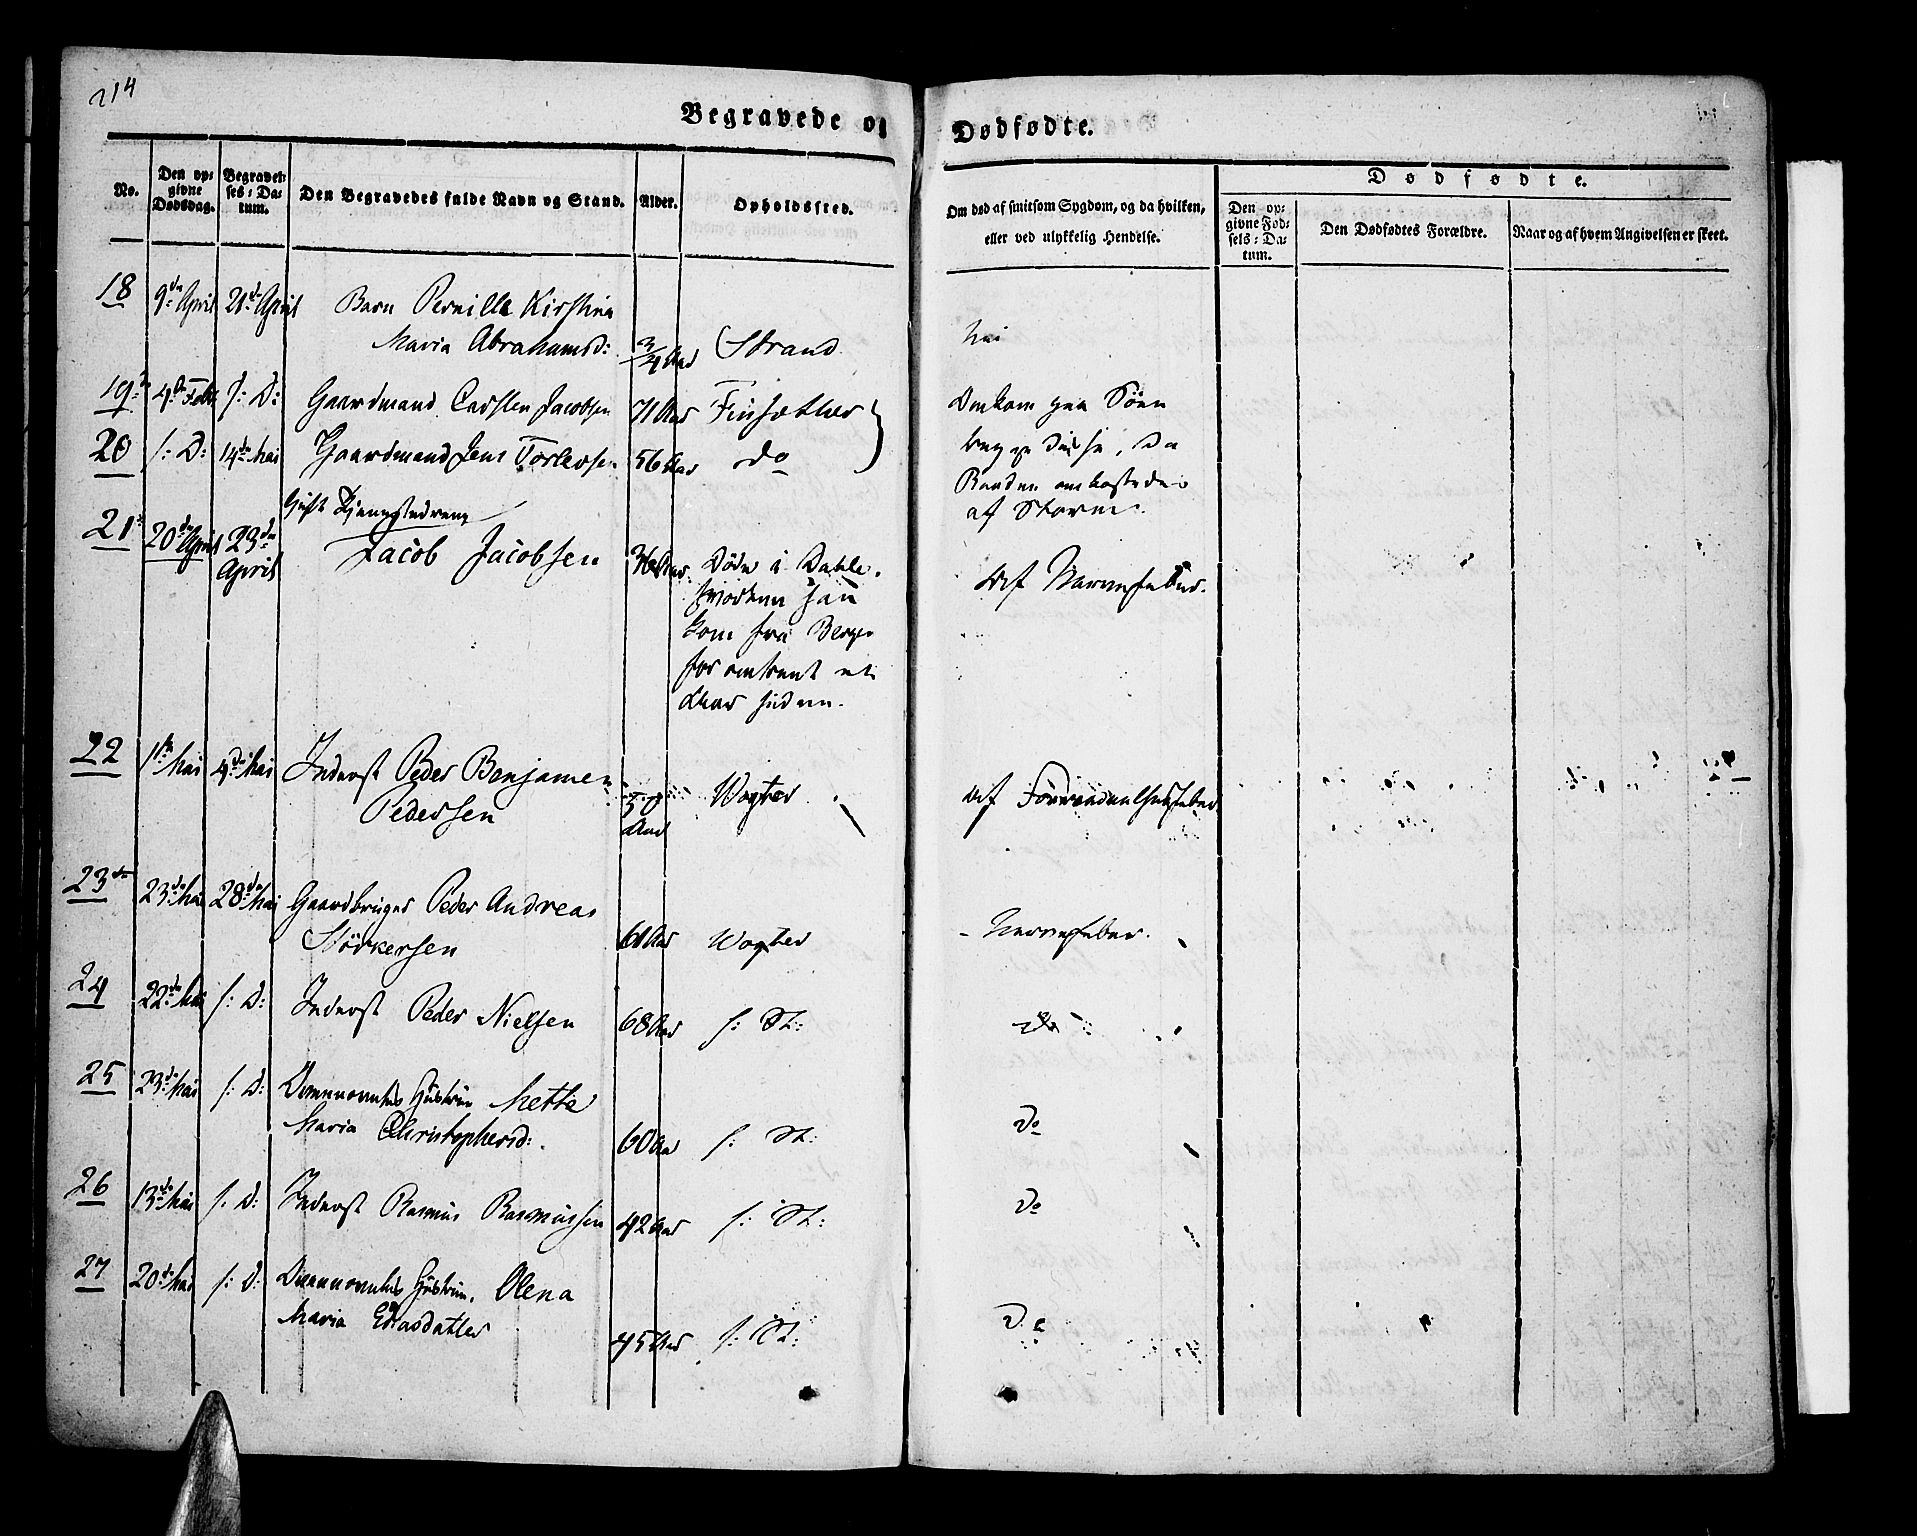 214
Begravede og
Dødfødte.
No.
Den op-
givne
Dødsdag.
Begravel-
ses-Da-
tum.
Den Begravedes fulde Navn og Stand.
Alder.
Opholdssted.
Om død af smitsom Sygdom, og da hvilken,
eller ved ulykkelig Hendelse.
Dødfødte.
Den op-
givne Fød-
sels-Da-
tum.
Den Dødfødtes Forældre.
Naar og af hvem Angivelsen er skeet.
18 9de April 21de April Barn Pernille Kirstina
Maria Abrahamsd: 3/4 Aar Strand nei
19 4de Febr s: D: Gaardmand Carsten Jacobsen 71 Aar Finsæther } Omkom paa Søen
20 s: D: 14de Mai Gaardmand Jens Torlevsen 56 Aar do begge disse, da
Baaden omkastedes
af Storm.
21 20de April 23de April Gift
Jacob Jacobsen 36 Aar Døde i Dahle-
fjorden han
kom fra Bergen
for omtrent et
Aar siden. Af Nervefeber.
22 1ste Mai 4de Mai Inderst Peder Benjamen
Pedersen 50 Aar Wogter Af Forraadnelsesfeber
23de 23de Mai 28de Mai Gaardbruger Peder Andreas
Störkersen 60 Aar Wogter - Nervefeber.
24 22de Mai s: D: Inderst Peder Nielsen 68 Aar s: St: Do
25 23de Mai s: D: Hustrue Mette
Maria Christophersd: 60 Aar s: St: Do
26 13de Mai s: D: Inderst Rasmus Rasmussen 42 Aar s: St: Do
27 20de Mai s: D: Hustrue Olena
Maria Eliasdatter 45 Aar s: St: Do